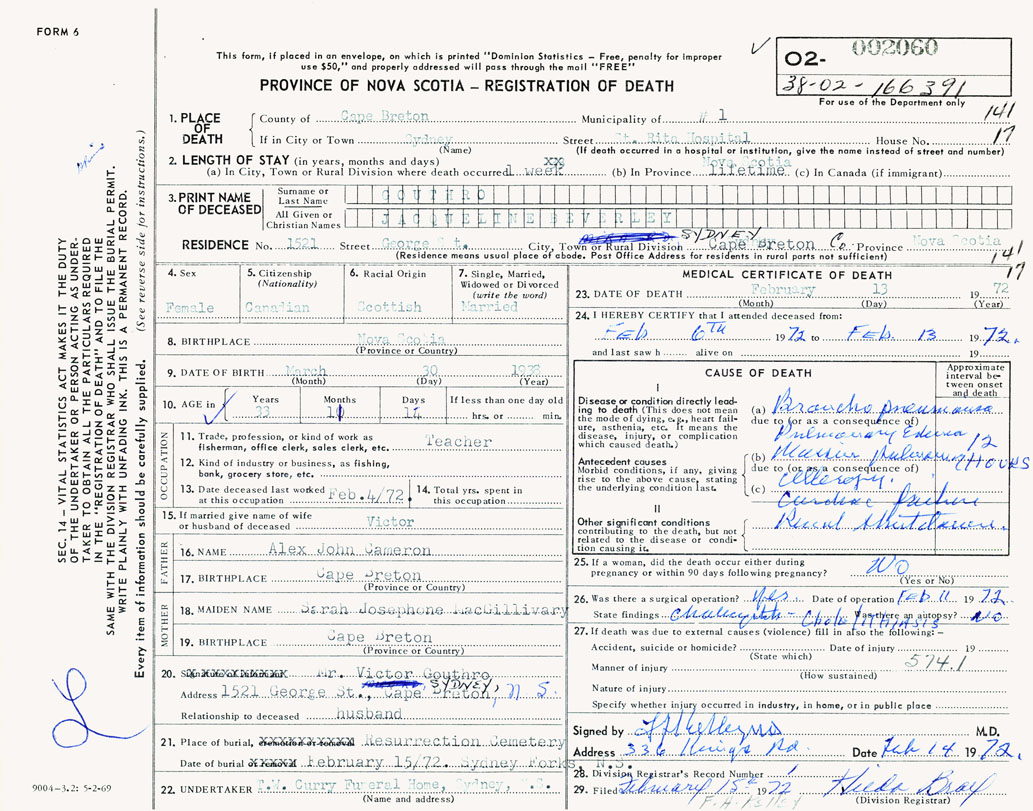 FORM 6
This form, if placed in an envelope, on which is printed "Dominion Statistics – Free, penalty for improper
use $50," and properly addressed will pass through the mail "FREE"
PROVINCE OF NOVA SCOTIA – REGISTRATION OF DEATH
O2- 002060
38-02-166391
For use of the Department only
141
17
1. PLACE OF DEATH
County of Cape Breton Municipality of # 1
If in City or Town Sydney Street St. Rita Hospital House No.
(Name) (If death occurred in a hospital or institution, give the name instead of street and number)
2. LENGTH OF STAY (in years, months and days) xxx Nova Scotia
(a) In City, Town or Rural Division where death occurred 1 week (b) In Province lifetime (c) In Canada (if immigrant)
3. PRINT NAME OF DECEASED
Surname or Last Name GOUTHRO
All Given or Christian Names JACQUELINE BEVERLEY
RESIDENCE No. 1521 Street George St. City, Town or Rural Division SYDNEY Cape Breton Co. Province Nova Scotia
(Residence means usual place of abode. Post Office Address for residents in rural parts not sufficient)
141
17
4. Sex Female
5. Citizenship (Nationality) Canadian
6. Racial Origin Scottish
7. Single, Married, Widowed or Divorced (write the word) Married
8. BIRTHPLACE Nova Scotia
(Province or Country)
9. DATE OF BIRTH March 30 1938
(Month) (Day) (Year)
10. AGE in Years 33 Months 10 Days If less than one day old
hrs. or min.
OCCUPATION
11. Trade, profession, or kind of work as fisherman, office clerk, sales clerk, etc. Teacher
12. Kind of industry or business, as fishing, bank, grocery store, etc.
13. Date deceased last worked at this occupation Feb.4/72
14. Total yrs. spent in this occupation
15. If married give name of wife or husband of deceased Victor
FATHER
16. NAME Alex John Cameron
17. BIRTHPLACE Cape Breton
(Province or Country)
MOTHER
18. MAIDEN NAME Sarah Josephone MacGillivary
19. BIRTHPLACE Cape Breton
(Province or Country)
20. Mr. Victor Gouthro
Address 1521 George St., Cape Breton, SYDNEY, N S.
Relationship to deceased husband
21. Place of burial, cremation or removal Resurrection Cemetery
Date of burial February 15/72. Sydney Forks, N.S.
22. UNDERTAKER T.W. Curry Funeral Home, Sydney, N.S.
(Name and address)
MEDICAL CERTIFICATE OF DEATH
23. DATE OF DEATH February 13 19 72
(Month) (Day) (Year)
24. I HEREBY CERTIFY that I attended deceased from:
FEB 6TH 1972 to FEB. 13 1972.
and last saw h alive on 19
CAUSE OF DEATH
Approximate interval between onset and death
I
Disease or condition directly leading to death (This does not mean the mode of dying, e.g., heart failure, asthenia, etc. It means the disease, injury, or complication which caused death.)
(a) Broncho pneumonia
due to (or as a consequence of)
Pulmonary Edema 12 HOURS
Antecedent causes
Morbid conditions, if any, giving rise to the above cause, stating the underlying condition last.
(b) Massive Pulmonary
due to (or as a consequence of)
(c) Cardiac failure
II
Other significant conditions contributing to the death, but not related to the disease or condition causing it.
Renal Shutdown.
25. If a woman, did the death occur either during pregnancy or within 90 days following pregnancy? NO
(Yes or No)
26. Was there a surgical operation? yes Date of operation FEB 11 1972.
State findings - CholeLITHIASIS Was there an autopsy? NO
27. If death was due to external causes (violence) fill in also the following:–
Accident, suicide or homicide? Date of injury 19
(State which) 574.1
Manner of injury
(How sustained)
Nature of injury
Specify whether injury occurred in industry, in home, or in public place
Signed by M.D.
Address 336 Kings Rd. Date Feb 14 1972.
28. Division Registrar's Record Number 1
29. Filed February 15th 1972 Hilda Bray
F. A. Kelley (Division Registrar)
SEC. 14 – VITAL STATISTICS ACT MAKES IT THE DUTY
OF THE UNDERTAKER OR PERSON ACTING AS UNDER-
TAKER TO OBTAIN ALL THE PARTICULARS REQUIRED
IN THE "REGISTRATION OF DEATH" AND TO FILE THE
SAME WITH THE DIVISION REGISTRAR WHO SHALL ISSUE THE BURIAL PERMIT.
WRITE PLAINLY WITH UNFADING INK. THIS IS A PERMANENT RECORD.
Every item of information should be carefully supplied. (See reverse side for instructions.)
9004-3.2: 5-2-69